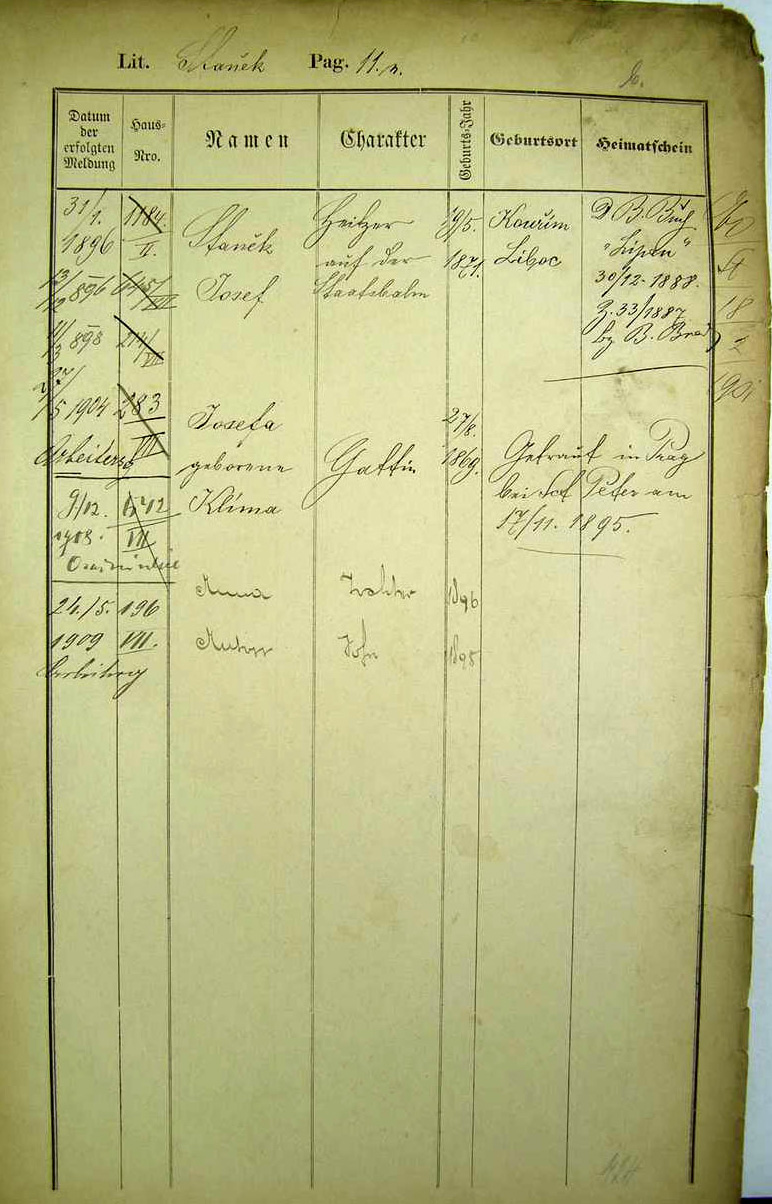 Lit. Staněk Pag. 11.
Datum der erfolgten Meldung
Haus-Nro.
Namen
Charakter
Geburts-Jahr
Geburtsort
Heimatschein
31/1. 1896
1184 II.
Staněk
Josef
Heitzer
auf der
Staatsbahn
19/5.
1871.
Kouřim
Liboc
D. B. Buch
30/12. 1888.
Z. 33/1887
bz B. Brod
13/12 896
645/VII
11/3 898
214/VII
27/5 1904
283 VII
Josefa
geborene
Klíma
Gattin
27/8.
1869.
Getraut in Prag
bei Sct Peter am
17/11. 1895.
Arbeitersb
9/12.
1908.
642
VII
Anna
Tochter
1896
24./5.
1909
196
VII.
Anton
Sohn
1895
424